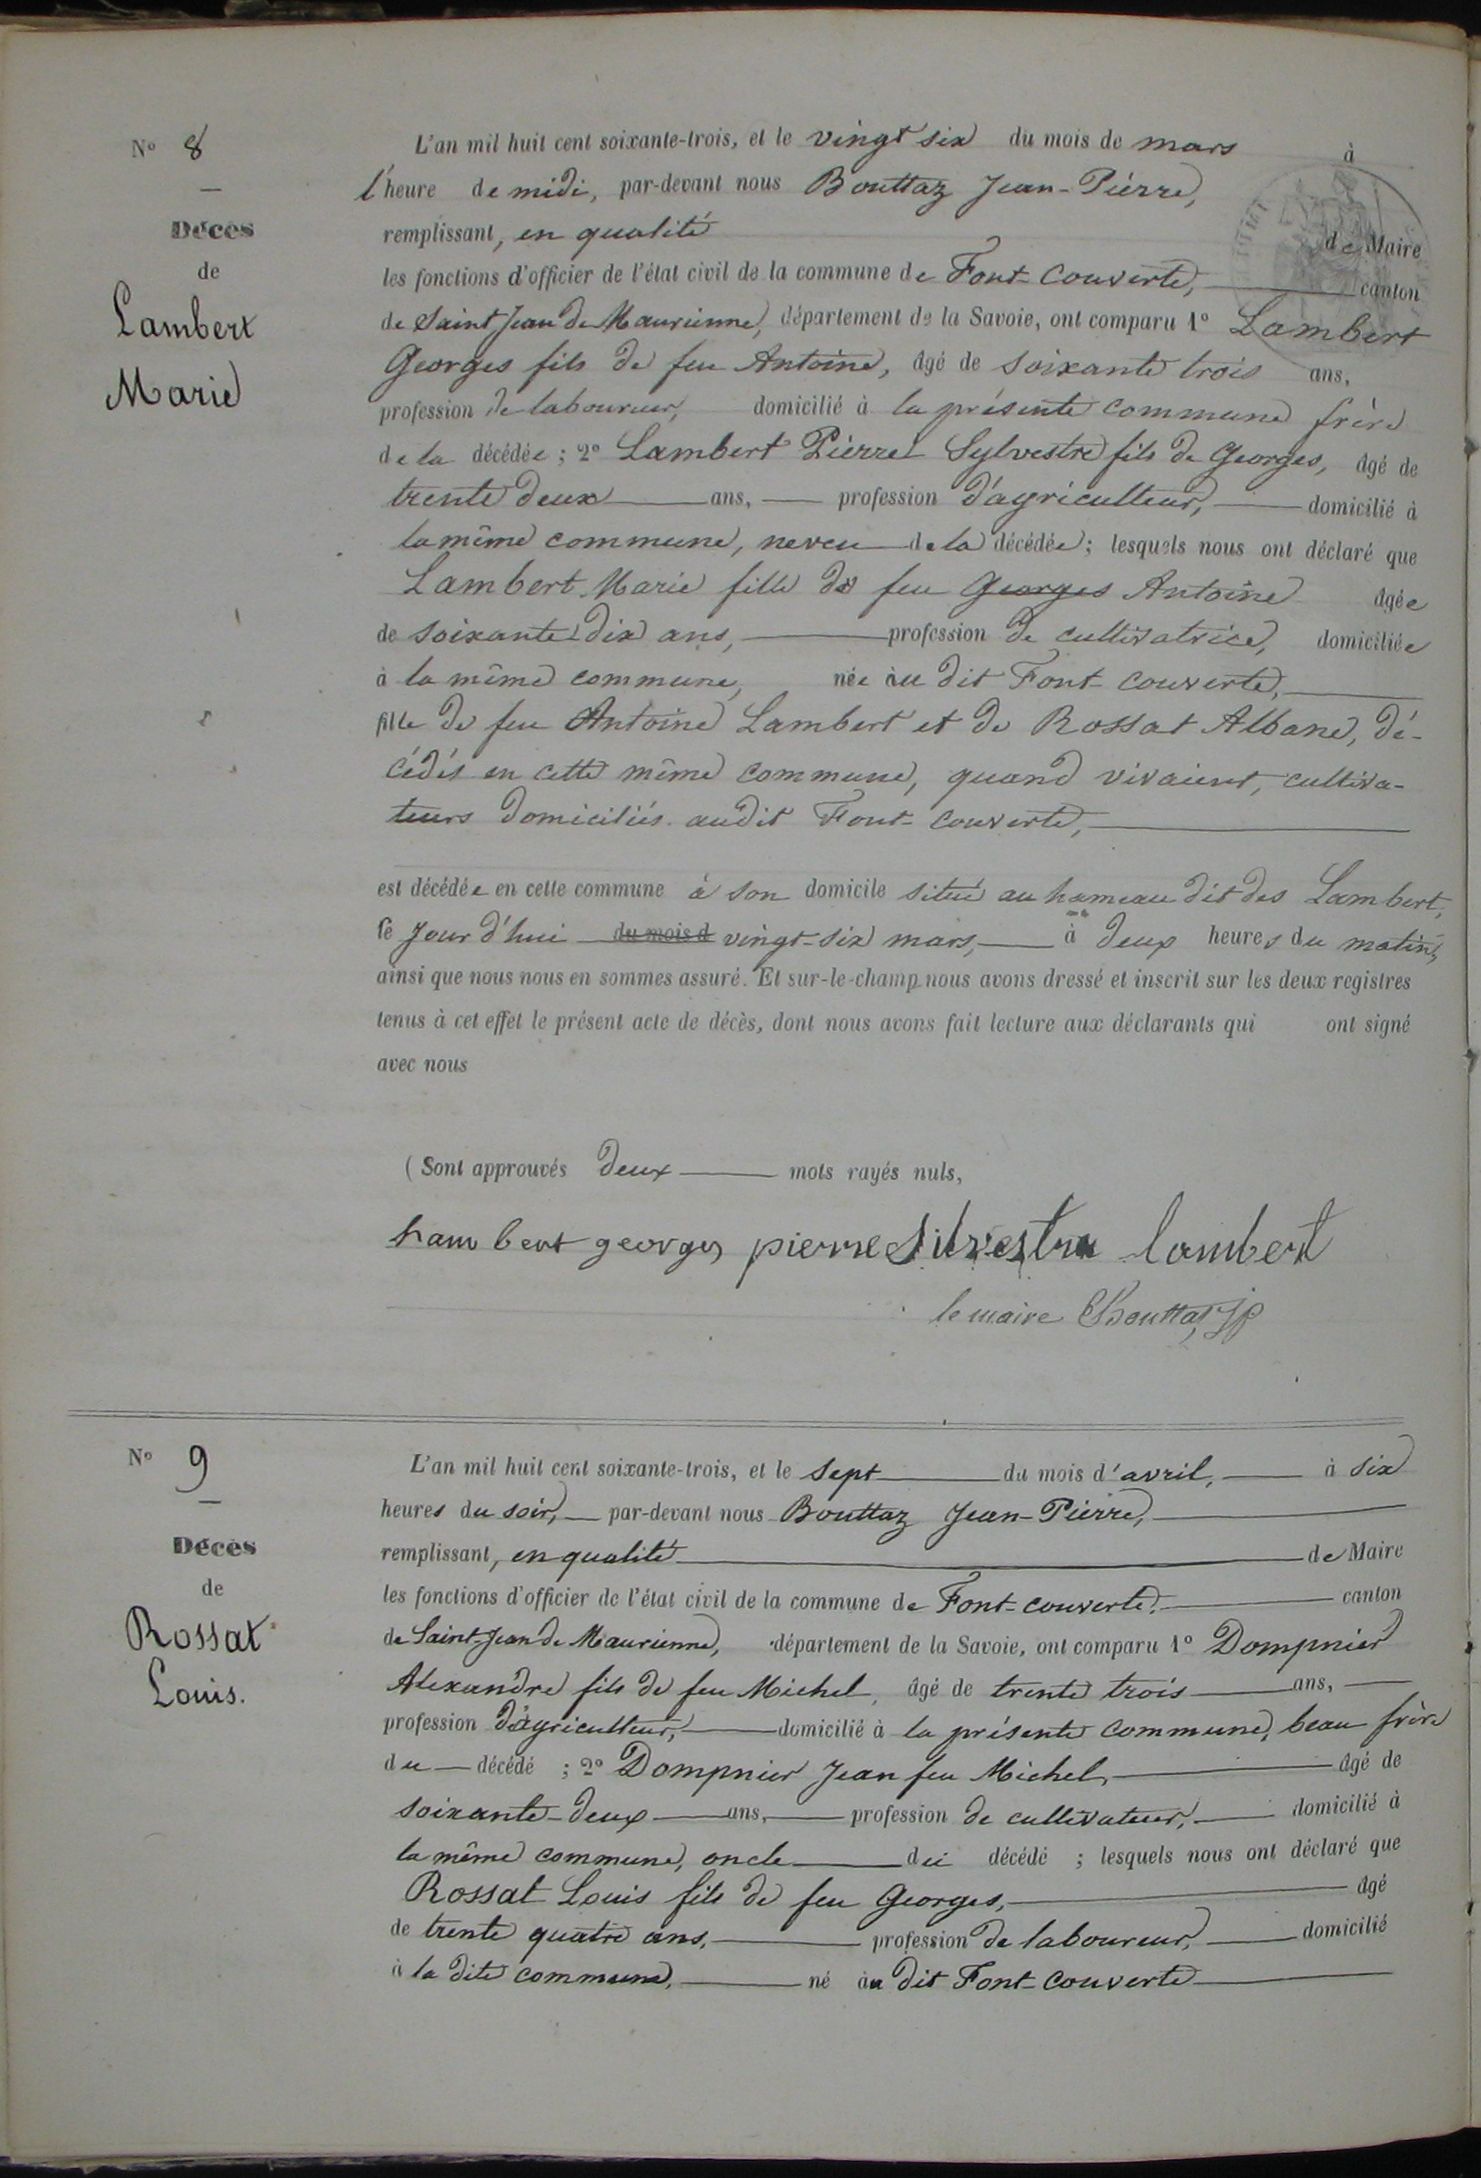 N° 8
Décès
de
Lambert
Marie
L'an mil huit cent soixante-trois, et le vingt six du mois de mars à
l'heure de midi, par-devant nous Bouttaz Jean-Pierre,
remplissant, en qualité de Maire
les fonctions d'officier de l'état civil de la commune de Font-Couverte, canton
de Saint Jean de Maurienne, département de la Savoie, ont comparu 1° Lambert
Georges fils de feu Antoine, âgé de soixante trois ans,
profession de laboureur, domicilié à la présente commune frère
de la décédée ; 2° Lambert Pierre Sylvestre fils de Georges, âgé de
trente deux ans, profession d'agriculteur, domicilié à
la même commune, neveu de la décédée ; lesquels nous ont déclaré que
Lambert Marie fille de feu Georges Antoine âgée
de soixante dix ans, profession de cultivatrice, domiciliée
à la même commune, née au dit Font-couverte,
fille de feu Antoine Lambert et de Rossat Albane, dé-
cédés en cette même commune, quand vivaient, cultiva-
teurs domiciliés audit Font-couverte,
est décédée en cette commune à son domicile situé au hameau dit des Lambert,
le jour d'hui du mois d vingt-six mars, à deux heures du matin,
ainsi que nous nous en sommes assuré. Et sur-le-champ nous avons dressé et inscrit sur les deux registres
tenus à cet effet le présent acte de décès, dont nous avons fait lecture aux déclarants qui ont signé
avec nous
(Sont approuvés deux mots rayés nuls,
Lambert georges pierre Silvestre lambert
le maire Bouttaz JP
N° 9
Décès
de
Rossat
Louis.
L'an mil huit cent soixante-trois, et le sept du mois d'avril, à six
heures du soir, par-devant nous Bouttaz Jean-Pierre,
remplissant, en qualité de Maire
les fonctions d'officier de l'état civil de la commune de Font-couverte, canton
de Saint-Jean de Maurienne, département de la Savoie, ont comparu 1° Dompnier
Alexandre fils de feu Michel, âgé de trente trois ans,
profession d'agriculteur, domicilié à la présente commune, beau frère
du décédé ; 2° Dompnier Jean feu Michel, âgé de
soixante-deux ans, profession de cultivateur, domicilié à
la même commune, oncle du décédé ; lesquels nous ont déclaré que
Rossat Louis fils de feu Georges, âgé
de trente quatre ans, profession de laboureur, domicilié
à la dite commune, né au dit Font-couverte